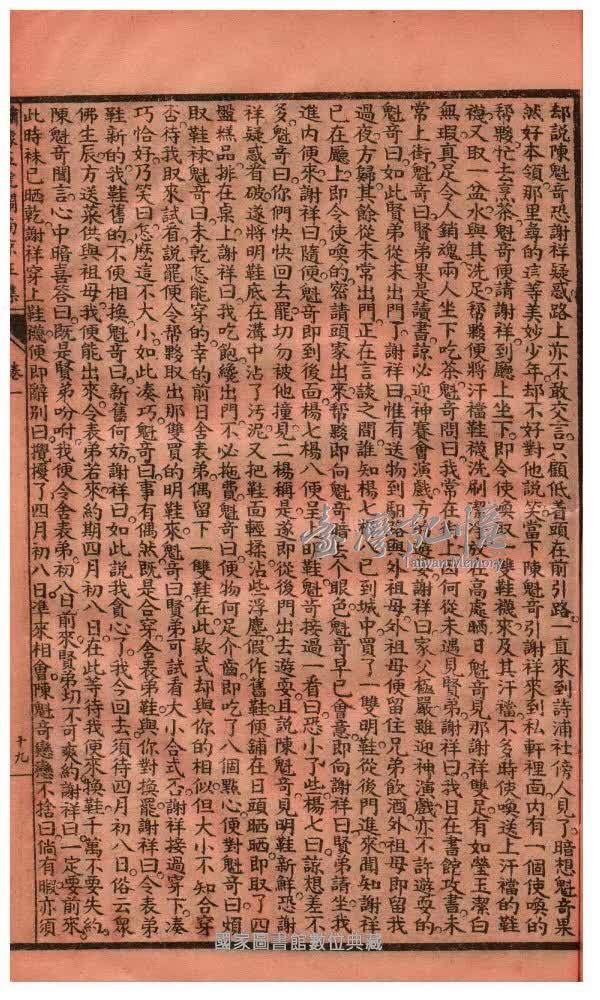 却說陳魁奇恐謝祥疑惑路上亦不敢交言只顧低着頭在前引路一直來到詩浦社傍人見了暗想魁奇果
然好本領那里尋的這等美妙少年却不好對他說笑當下陳魁奇引謝祥來到私軒裡面內有一個使喚的
帮夥忙去烹茶魁奇便請謝祥到廳上坐下即令使喚取一雙鞋襪來及其汗襠不多時使喚送上汗襠的鞋
襪又取一盆水與其洗足帮夥便將汗襠鞋襪洗刷 放 高處晒日魁奇見那謝祥雙足有如瑩玉潔白
無瑕真足令人銷魂兩人坐下吃茶魁奇問曰我常在 上因何從未遇見賢弟謝祥曰我日在書館攻書未
常上街魁奇曰賢弟果是讀書諒必迎神賽會演戲方 遊 謝祥曰家父極嚴雖迎神演戲亦不許遊耍的
魁奇曰如此賢弟從未出門了謝祥曰惟有送物到 外祖母外祖母便留住兄弟飲酒外祖母即留我
過夜方歸其餘從未常出門正在言談之間誰知楊七楊八已到城中買了一雙明鞋從後門進來聞知謝祥
已在廳上即令使喚的密請頭家出來帮夥即向魁奇暗丟个眼色魁奇早已會意即向謝祥曰賢弟請坐我
進內便來謝祥曰隨便魁奇即到後面楊七楊八便呈上明鞋魁奇接過一看曰恐小了些楊七曰諒想差不
多魁奇曰你們快快回去罷切勿被他撞見二楊稱是遂即從後門出去遊耍且說陳魁奇見明鞋新鮮恐謝
祥疑惑看破遂將明鞋底在溝中沾了汚泥又把鞋面輕揉沾些浮塵假作舊鞋便舖在日頭晒晒即取了四
盤糕品排在棹上謝祥曰我吃飽纔出門不必拖費魁奇曰便物何足介齒即吃了八個點心便對魁奇曰煩
取鞋襪魁奇曰未乾怎能穿的幸的前日舍表弟偶留下一雙鞋在此欵式却與你的相似但大小不知合穿
否待我取來試看說罷便令帮夥取出那雙買的明鞋來魁奇曰賢弟可試看大小合式否謝祥接過穿下凑
巧恰好乃笑曰怎麽這不大小如此凑巧魁奇曰事有偶然既是合穿舍表弟鞋與你對換罷謝祥曰令表弟
鞋新的我鞋舊的不便相換魁奇曰新舊何妨謝祥曰如此說我貪心了我今回去須待四月初八日俗云衆
佛生辰方送菜供與祖母我便能出來令表弟若來約期四月初八日在此等待我便來換鞋千萬不要失約
陳魁奇聞言心中暗喜答曰既是賢弟吩咐我便令舍表弟初八日前來賢弟切不可爽約謝祥曰一定要前來
此時袜已晒乾謝祥穿上鞋襪便即辭別曰攪擾了四月初八日準來相會陳魁奇戀戀不捨曰倘有暇亦須
卷一
十九
臺灣記憶
Taiwan Memory
國家圖書館數位典藏